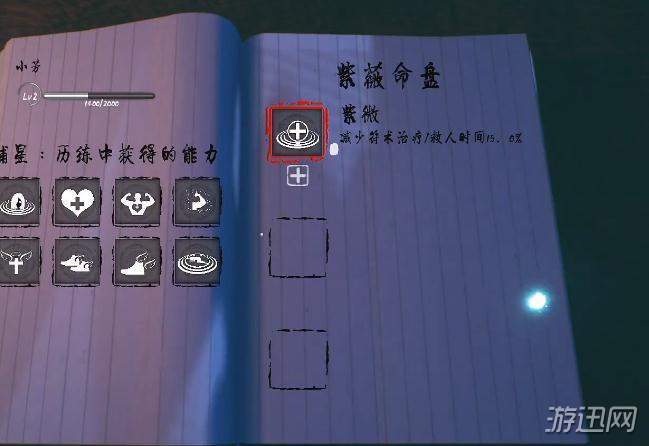 小芳
Lv2
1400/2000
辅星：历练中获得的能力
紫薇命盘
紫微
减少符术治疗/救人时间15.0%
游迅网